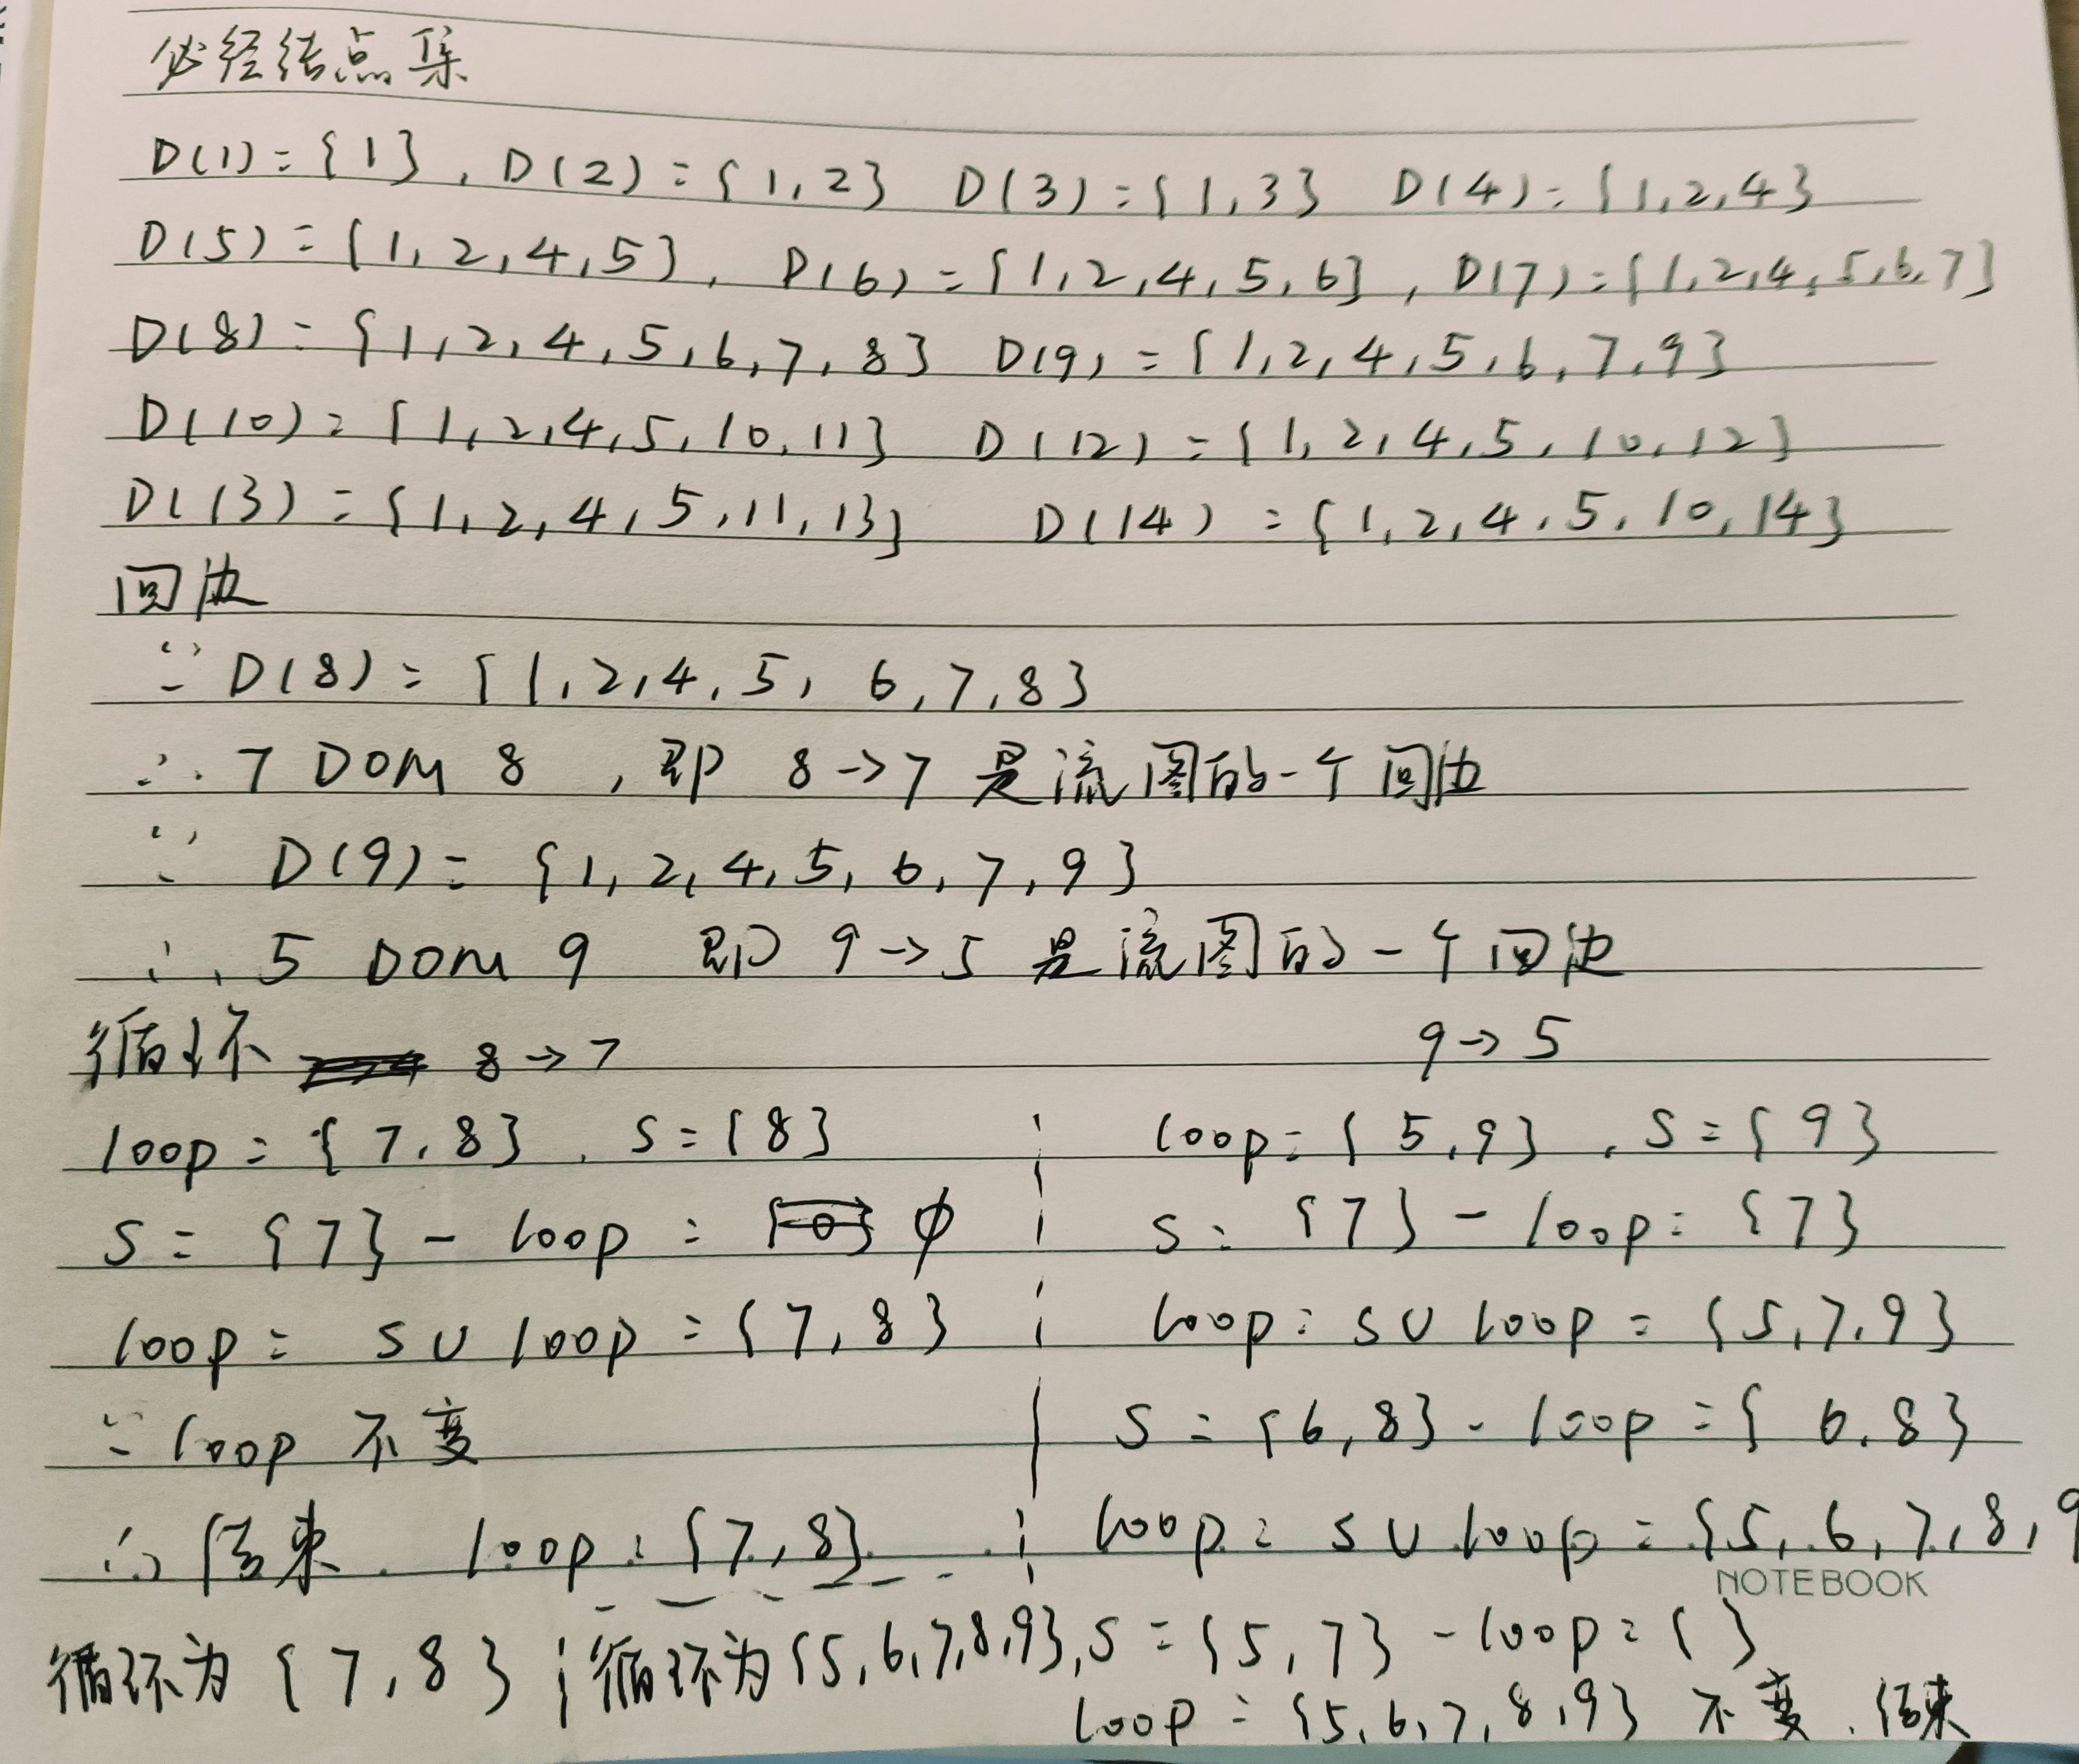 必经结点集
D(1)={1}, D(2)={1,2} D(3)={1,3} D(4)={1,2,4}
D(5)={1,2,4,5}, D(6)={1,2,4,5,6}, D(7)={1,2,4,5,6,7}
D(8)={1,2,4,5,6,7,8} D(9)={1,2,4,5,6,7,9}
D(10)={1,2,4,5,10,11} D(12)={1,2,4,5,10,12}
D(13)={1,2,4,5,11,13} D(14)={1,2,4,5,10,14}
回边
∵ D(8)={1,2,4,5,6,7,8}
∴ 7 DOM 8 ,即 8->7 是流图的一个回边
∵ D(9)={1,2,4,5,6,7,9}
∴ 5 DOM 9 即 9->5 是流图的一个回边
循环 8->7 9->5
loop={7,8}, S={8} loop={5,9}, S={9}
S={7}-loop=∅ S={7}-loop={7}
loop=S∪loop={7,8} loop=S∪loop={5,7,9}
∵loop 不变 S={6,8}-loop={6,8}
∴结束. loop={7,8} loop=S∪loop={5,6,7,8,9
NOTEBOOK
循环为{7,8} 循环为{5,6,7,8,9}, S={5,7}-loop={}
loop={5,6,7,8,9} 不变.结束